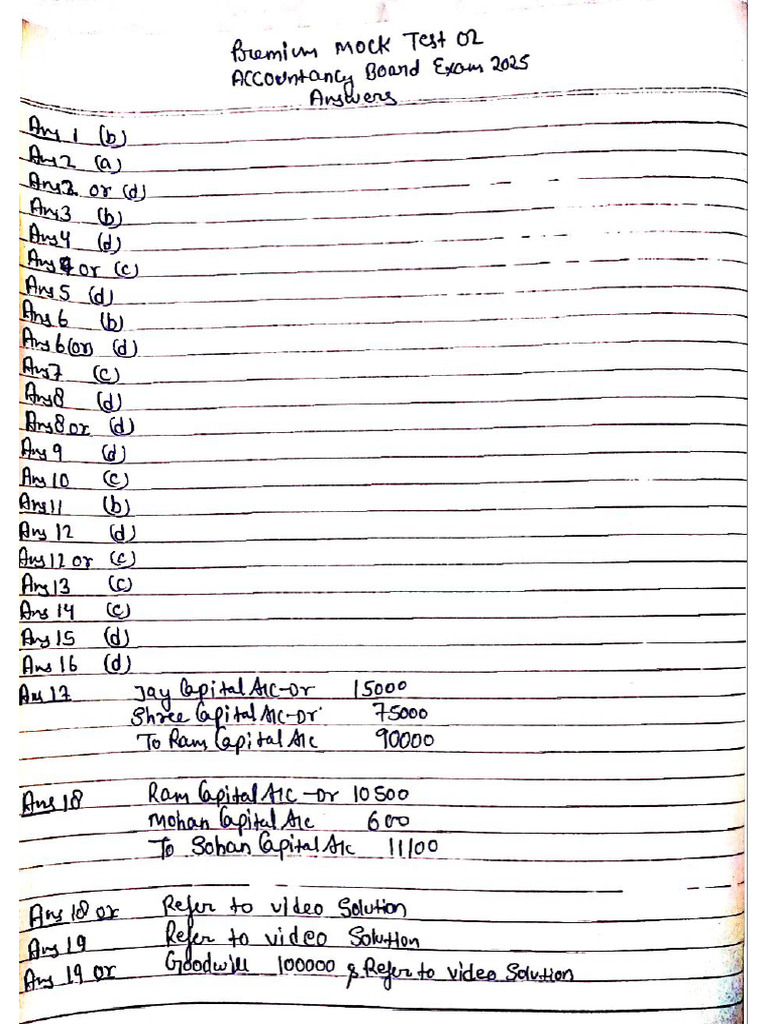 Premium Mock Test 02
Accountancy Board Exam 2025
Answers
Ans 1 (b)
Ans 2 (a)
Ans 2 or (d)
Ans 3 (b)
Ans 4 (d)
Ans 4 or (c)
Ans 5 (d)
Ans 6 (b)
Ans 6 (or) (d)
Ans 7 (c)
Ans 8 (d)
Ans 8 or (d)
Ans 9 (d)
Ans 10 (c)
Ans 11 (b)
Ans 12 (d)
Ans 12 or (c)
Ans 13 (c)
Ans 14 (c)
Ans 15 (d)
Ans 16 (d)
Ans 17 Jay Capital A/c - Dr 15000
Shree Capital A/c - Dr. 75000
To Ram Capital A/c 90000
Ans 18 Ram Capital A/c - Dr 10500
Mohan Capital A/c 600
To Sohan Capital A/c 11100
Ans 18 or Refer to video Solution
Ans 19 Refer to video Solution
Ans 19 or Goodwill 100000 & Refer to video Solution